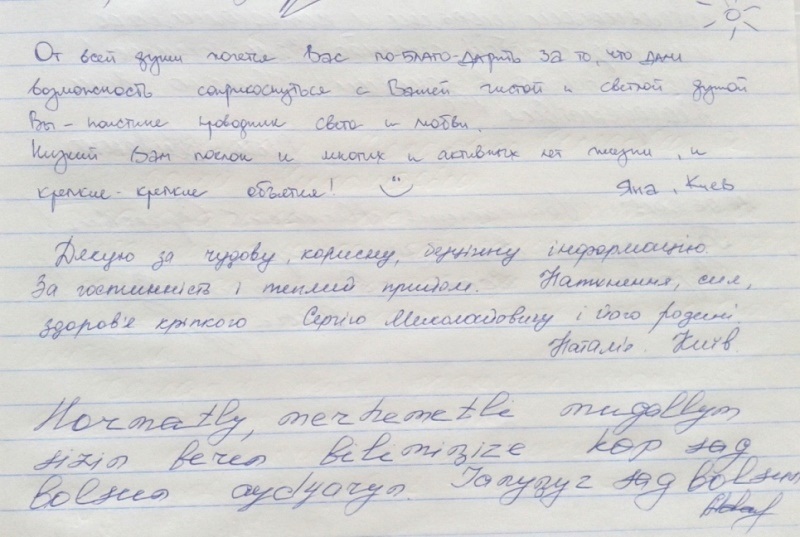 От всей души хочется Вас по-БЛАГО-ДАРИТЬ за то, что дали
возможность соприкоснуться с Вашей чистой и светлой душой
Вы - поистине проводник света и любви.
Низкий Вам поклон и многих и активных лет жизни, и
крепкие-крепкие объятия!
Яна, Киев
Дякую за чудову, корисну, безцінну інформацію.
За гостинність і теплий прийом. Натхнення, сил,
здоров'я кріпкого Сергію і його родині
Наталія. Київ
Hormatly, merhemetli mugallym
siziň beren bilimiňize köp sag
bolsun aýdýaryn. Taňryýaň sag bolsun